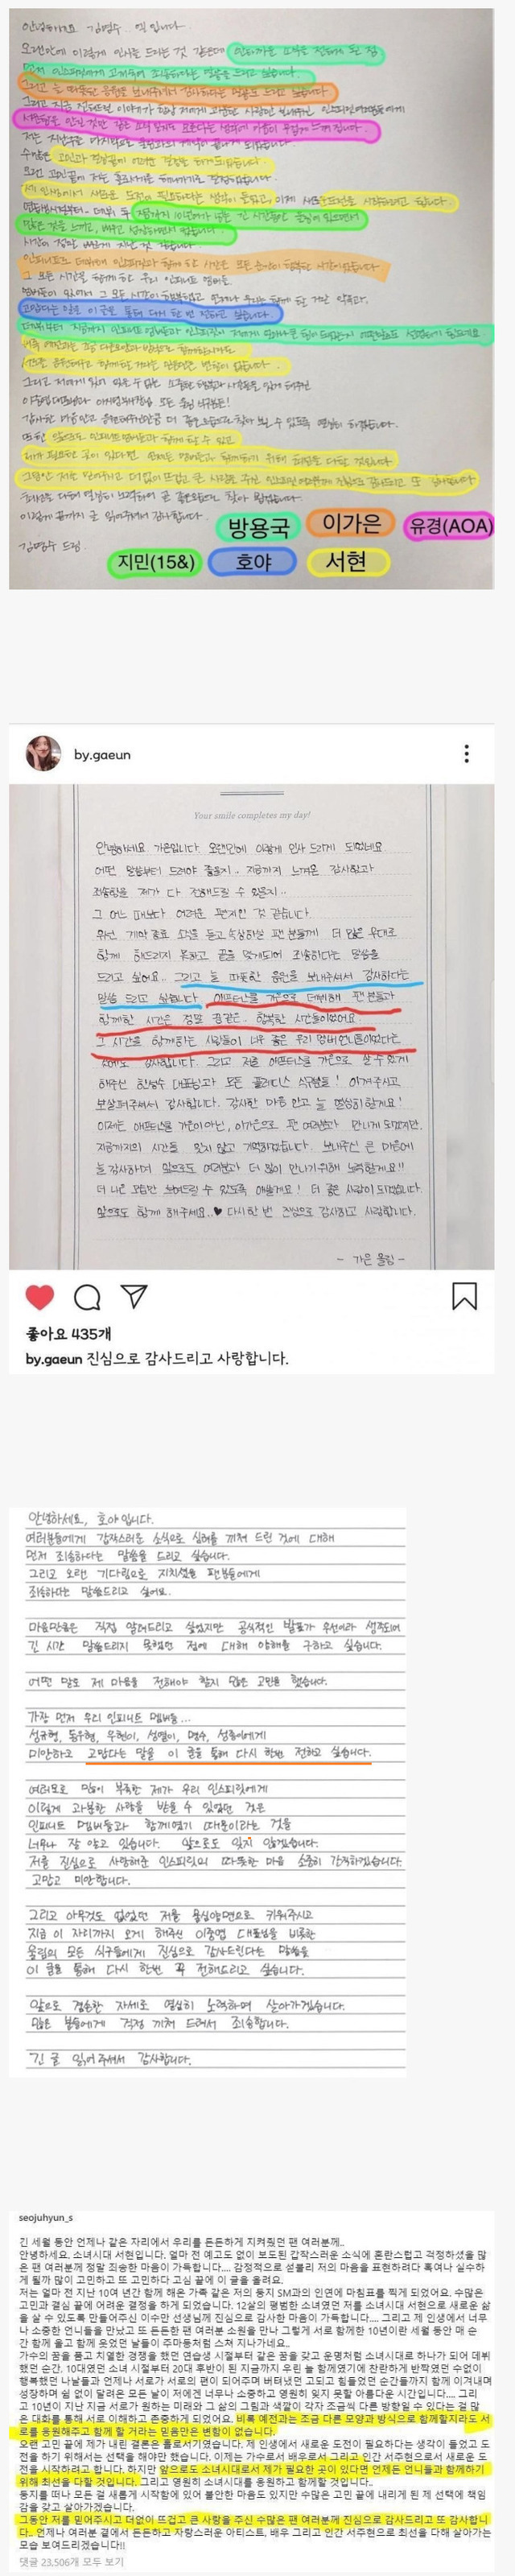 안녕하세요 김명수.. 엘 입니다.
오랜만에 이렇게 인사를 드리는 것 같은데 안타까운 소식을 전하게 된 점
먼저 인스피릿에게 고개숙여 죄송하다는 말씀을 드리고 싶습니다.
그리고 늘 따뜻한 응원을 보내주셔서 감사하다는 말씀도 드리고 싶습니다
수많은 고민과 걱정끝에 이러한 결정을 하게 되었습니다.
제 인생에서 새로운 도전이 필요하다는 생각이 들었고, 이제 새로운 도전을 시작하려고 합니다.
시간이 정말 빠르게 지난 것 같습니다.
그 모든 시간을 함께 한 우리 인피니트 멤버들.
고맙다는 말을 이 글을 통해 다시 한 번 전하고 싶습니다.
이렇게 끝까지 글 읽어주셔서 감사합니다.
김명수 드림.
방용국 이가은 유경(AOA)
지민(15&) 호야 서현
by.gaeun
Your smile completes my day!
안녕하세요 가은입니다. 오랜만에 이렇게 인사 드리게 되었네요
어떤 말씀부터 드려야 좋을지.. 지금까지 느껴온 감사함과
죄송함을 제가 다 전해드릴 수 있을지..
그 어느 때보다 어려운 편지인 것 같습니다.
우선 계약 종료 소식을 듣고 속상하실 팬 분들께 더 많은 무대로
함께 해드리지 못하고 끝을 맺게되어 죄송하다는 말씀을
드리고 싶어요.. 그리고 늘 따뜻한 응원을 보내주셔서 감사하다는
말씀 드리고 싶습니다. 애프터스쿨 가은으로 데뷔해 팬 분들과
함께한 시간은 정말 꿈같은.. 행복한 시간들이었어요.
그 시간을 함께하는 사람들이 너무 좋은 우리 멤버언니들이었다는
것에도 감사합니다. 그리고 저를 애프터스쿨 가은으로 살 수 있게
해주신 한성수 대표님과 모든 플레디스 식구분들! 아껴주시고
보살펴주셔서 감사합니다. 감사한 마음 안고 늘 열심히 할게요!
이제는 애프터스쿨 가은이 아닌, 이가은으로 팬 여러분과 만나게 되겠지만,
지금까지의 시간들 잊지 않고 기억하겠습니다. 보내주신 큰 마음에
늘 감사하며 앞으로도 여러분과 더 많이 만나기위해 노력할게요!!
더 나은 모습만 보여드릴 수 있도록 애쓸게요! 더 좋은 사람이 되겠습니다.
앞으로도 함께 해주세요..♥ 다시한 번 진심으로 감사하고 사랑합니다.
- 가은 올림 -
좋아요 435개
by.gaeun 진심으로 감사드리고 사랑합니다.
안녕하세요, 호야입니다.
여러분들에게 갑작스러운 소식으로 심려를 끼쳐 드린 것에 대해
먼저 죄송하다는 말씀을 드리고 싶습니다.
그리고 오랜 기다림으로 지치셨을 팬분들에게
죄송하다는 말씀드리고 싶어요.
마음만큼은 직접 알려드리고 싶었지만 공식적인 발표가 우선이라 생각되어
긴 시간 말씀드리지 못했던 점에 대해 양해를 구하고 싶습니다.
어떤 말로 제 마음을 전해야 할지 많은 고민을 했습니다.
가장 먼저 우리 인피니트 멤버들...
성규형, 동우형, 우현이, 성열이, 명수, 성종이에게
미안하고 고맙다는 말을 이 글을 통해 다시 한번 전하고 싶습니다.
여러모로 많이 부족한 제가 우리 인스피릿에게
이렇게 과분한 사랑을 받을 수 있었던 것은
인피니트 멤버들과 함께였기 때문이라는 것을
너무나 잘 알고 있습니다. 앞으로도 잊지 않겠습니다.
저를 진심으로 사랑해준 인스피릿의 따뜻한 마음 소중히 간직하겠습니다.
고맙고 미안합니다.
그리고 아무것도 없었던 저를 물심양면으로 키워주시고
지금 이 자리까지 오게 해주신 이중엽 대표님을 비롯한
울림의 모든 식구들에게 진심으로 감사드린다는 말씀을
이 글을 통해 다시 한번 꼭 전해드리고 싶습니다.
앞으로 겸손한 자세로 열심히 노력하며 살아가겠습니다.
많은 분들에게 걱정 끼쳐 드려서 죄송합니다.
긴 글 읽어주셔서 감사합니다.
seojuhyun_s
긴 세월 동안 언제나 같은 자리에서 우리를 든든하게 지켜줬던 팬 여러분께..
안녕하세요. 소녀시대 서현입니다. 얼마 전 예고도 없이 보도된 갑작스러운 소식에 혼란스럽고 걱정하셨을 많
은 팬 여러분께 정말 죄송한 마음이 가득합니다.... 감정적으로 섣불리 저의 마음을 표현하려다 혹여나 실수하
게 될까 많이 고민하고 또 고민하다 고심 끝에 이 글을 올려요.
저는 얼마 전 지난 10여 년간 함께 해온 가족 같은 저의 둥지 SM과의 인연에 마침표를 찍게 되었어요. 수많은
고민과 결심 끝에 어려운 결정을 하게 되었습니다. 12살의 평범한 소녀였던 저를 소녀시대 서현으로 새로운 삶
을 살 수 있도록 만들어주신 이수만 선생님께 진심으로 감사한 마음이 가득합니다.... 그리고 제 인생에서 너무
나 소중한 언니들을 만났고 또 든든한 팬 여러분 소원을 만나 그렇게 서로 함께한 10년이란 세월 동안 매 순
간 함께 울고 함께 웃었던 날들이 주마등처럼 스쳐 지나가네요..
가수의 꿈을 품고 치열한 경쟁을 했던 연습생 시절부터 같은 꿈을 갖고 운명처럼 소녀시대로 하나가 되어 데뷔
했던 순간. 10대였던 소녀 시절부터 20대 후반이 된 지금까지 우린 늘 함께였기에 찬란하게 반짝였던 수없이
행복했던 나날들과 언제나 서로가 서로의 편이 되어주며 버텨냈던 고되고 힘들었던 순간들까지 함께 이겨내며
성장하며 쉼 없이 달려온 모든 날이 저에겐 너무나 소중하고 영원히 잊지 못할 아름다운 시간입니다.... 그리
고 10년이 지난 지금 서로가 원하는 미래와 그 삶의 그림과 색깔이 각자 조금씩 다른 방향일 수 있다는 걸 많
은 대화를 통해 서로 이해하고 존중하게 되었어요. 비록 예전과는 조금 다른 모양과 방식으로 함께할지라도 서
로를 응원해주고 함께 할 거라는 믿음만은 변함이 없습니다.
오랜 고민 끝에 제가 내린 결론은 홀로서기였습니다. 제 인생에서 새로운 도전이 필요하다는 생각이 들었고 도
전을 하기 위해서는 선택을 해야만 했습니다. 이제는 가수로서 배우로서 그리고 인간 서주현으로서 새로운 도
전을 시작하려고 합니다. 하지만 앞으로도 소녀시대로서 제가 필요한 곳이 있다면 언제든 언니들과 함께하기
위해 최선을 다할 것입니다. 그리고 영원히 소녀시대를 응원하고 함께할 것입니다..
둥지를 떠나 모든 걸 새롭게 시작함에 있어 불안한 마음도 있지만 수많은 고민 끝에 내리게 된 제 선택에 책임
감을 갖고 살아가겠습니다.
그동안 저를 믿어주시고 더없이 뜨겁고 큰 사랑을 주신 수많은 팬 여러분께 진심으로 감사드리고 또 감사합니
다.. 언제나 여러분 곁에서 든든하고 자랑스러운 아티스트, 배우 그리고 인간 서주현으로 최선을 다해 살아가는
모습 보여드리겠습니다!!
댓글 23,506개 모두 보기